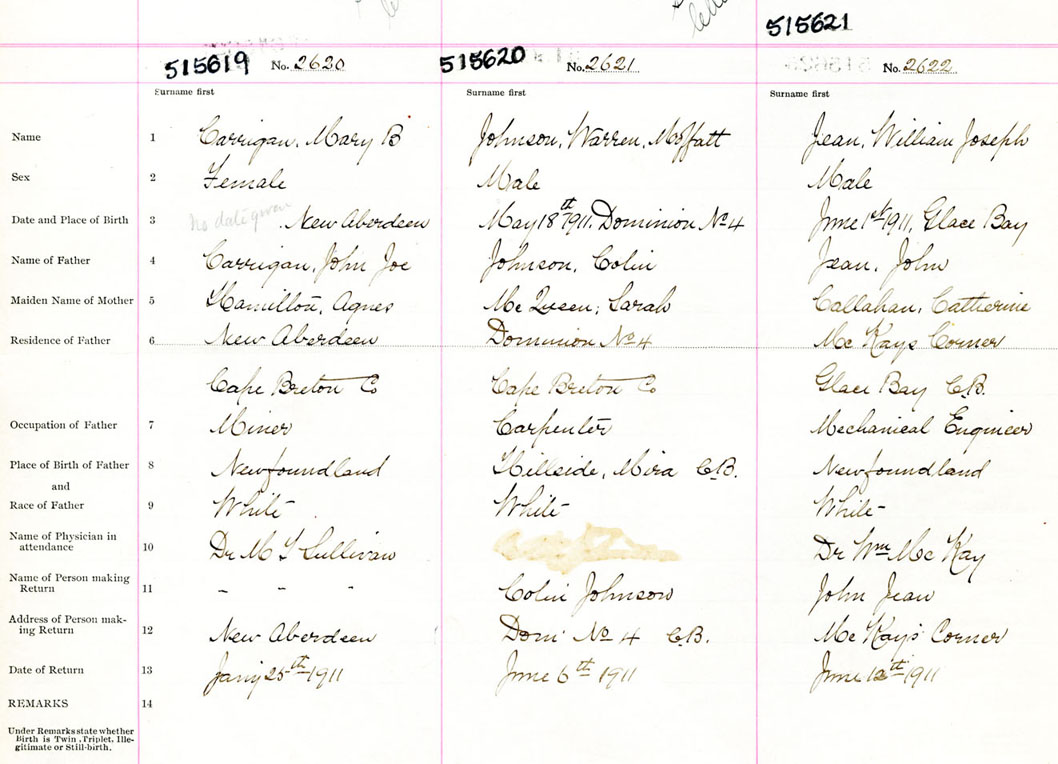 515621
515619 No. 2620 515620 No. 2621 No. 2622
Surname first Surname first Surname first
Name 1 Carrigan, Mary B Johnson, Warren, Moffatt Jean, William Joseph
Sex 2 Female Male Male
Date and Place of Birth 3 no date given New Aberdeen May 18th 1911, Dominion No 4 June 1st 1911, Glace Bay
Name of Father 4 Carrigan, John Joe Johnson, Colin Jean, John
Maiden Name of Mother 5 Hamilton, Agnes Mc Queen, Sarah Callahan, Catherine
Residence of Father 6 New Aberdeen Dominion No 4 Mc Kays Corner
Cape Breton Co Cape Breton Co Glace Bay C.B.
Occupation of Father 7 Miner Carpenter Mechanical Engineer
Place of Birth of Father 8 Newfoundland Hillside, Mira C.B. Newfoundland
and
Race of Father 9 White White White
Name of Physician in
attendance 10 Dr M T Sullivan Dr Wm Mc Kay
Name of Person making
Return 11 - - - Colin Johnson John Jean
Address of Person mak-
ing Return 12 New Aberdeen Dom' No 4 C.B. Mc Kays Corner
Date of Return 13 Jany 25th 1911 June 6th 1911 June 12th 1911
REMARKS 14
Under Remarks state whether
Birth is Twin, Triplet, Ille-
gitimate or Still-birth.